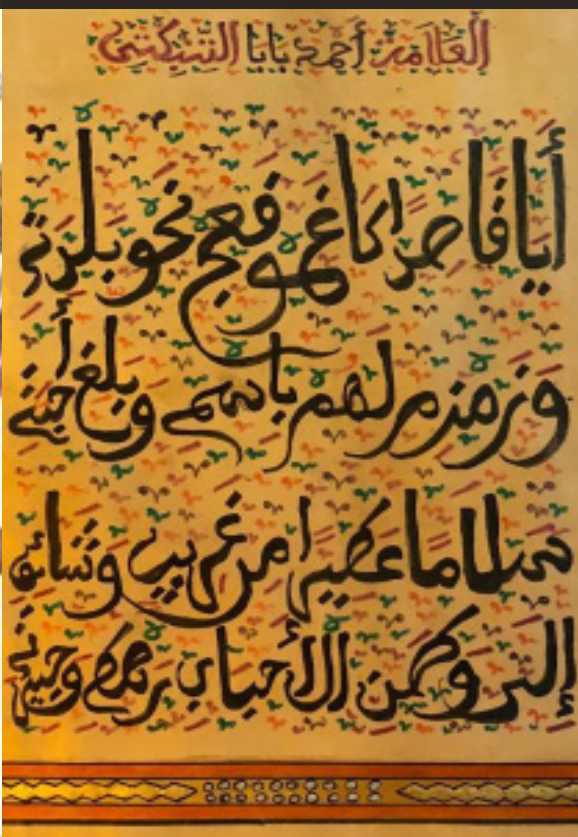 العلامة أحمد بابا التنبكتي
أيا قاصدا كاغو فعج نحو بلدتي
وزمزم لهم باسمي وبلغ أحبتي
سلاما عطيرا من غريب وشائق
إلى وطن الأحباب رهطي وجيرتي